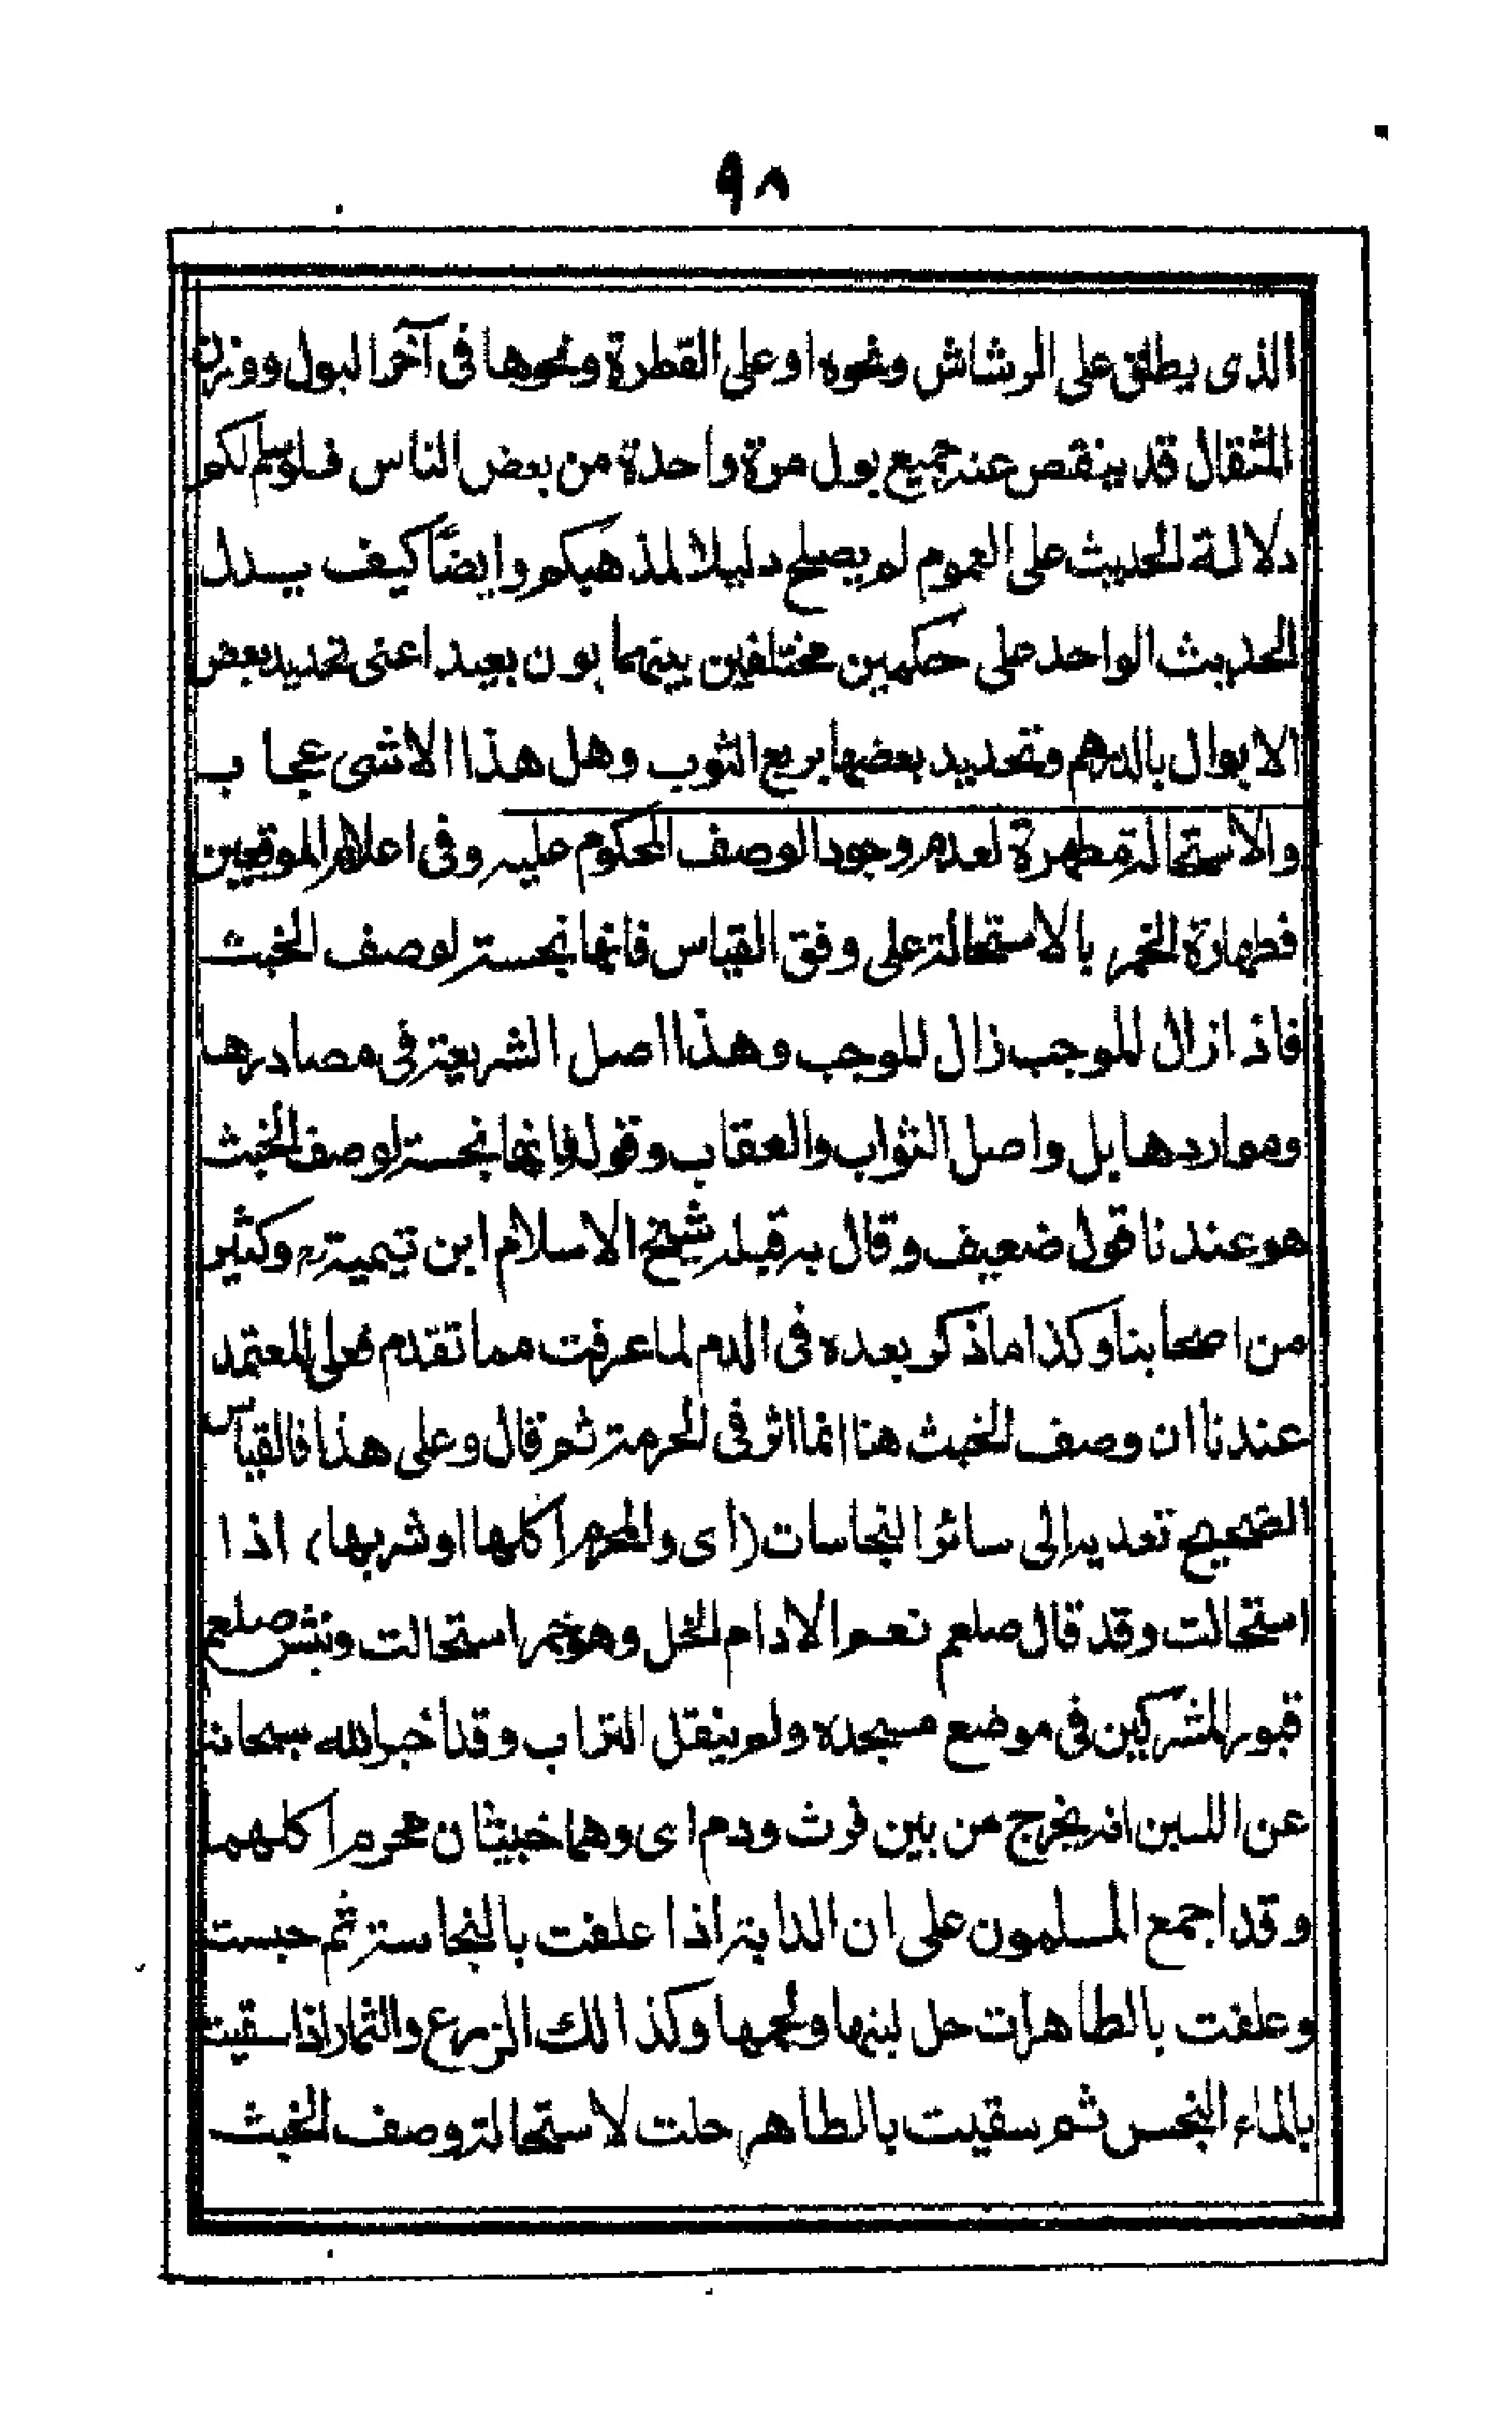 ٩٨
الذى يطلق على الرشاش ونحوه او على القطرة ونحوها فى آخر البول ووزن
المثقال قد ينقص عنه جميع بول مرة واحدة من بعض الناس فلو سلم لكم
دلالة الحديث على العموم لم يصلح دليلا لمذهبكم وايضًا كيف يدل
الحديث الواحد على حكمين مختلفين بينهما بون بعيد اعنى تحديد بعض
الابوال بالدرهم وتحديد بعضها بربع الثوب وهل هذا الا شى عجاب
والاستحالة مطهرة لعدم وجود الوصف المحكوم عليه وفى اعلام الموقعين
فطهارة الخمر بالاستحالة على وفق القياس فانها نجسة لوصف الخبث
فاذا زال الموجب زال الموجب وهذا اصل الشريعة فى مصادرها
ومواردها بل واصل الثواب والعقاب وقوله فانها نجسة لوصف الخبث
هو عندنا قول ضعيف وقال به قبله شيخ الاسلام ابن تيمية رح وكثير
من اصحابنا وكذا ما ذكر بعده فى الدم لما عرفت مما تقدم فعلى المعتمد
عندنا ان وصف الخبث هنا انما اثر فى الحرمة ثم قال وعلى هذا فالقياس
الصحيح تعديه الى سائر النجاسات (اى والمحرم اكلها او شربها) اذا
استحالت وقد قال صلعم نعم الادام الخل وهو خمر استحالت ونبش صلعم
قبور المشركين فى موضع مسجده ولم ينقل التراب وقد اخبر الله سبحانه
عن اللبن انه يخرج من بين فرث ودم اى وهما خبيثان محرم اكلهما
وقد اجمع المسلمون على ان الدابة اذا علفت بالنجاسة ثم حبست
وعلفت بالطاهرات حل لبنها ولحمها وكذالك الزرع والثمار اذا سقيت
بالماء النجس ثم سقيت بالطاهر حلت لاستحالة وصف الخبث